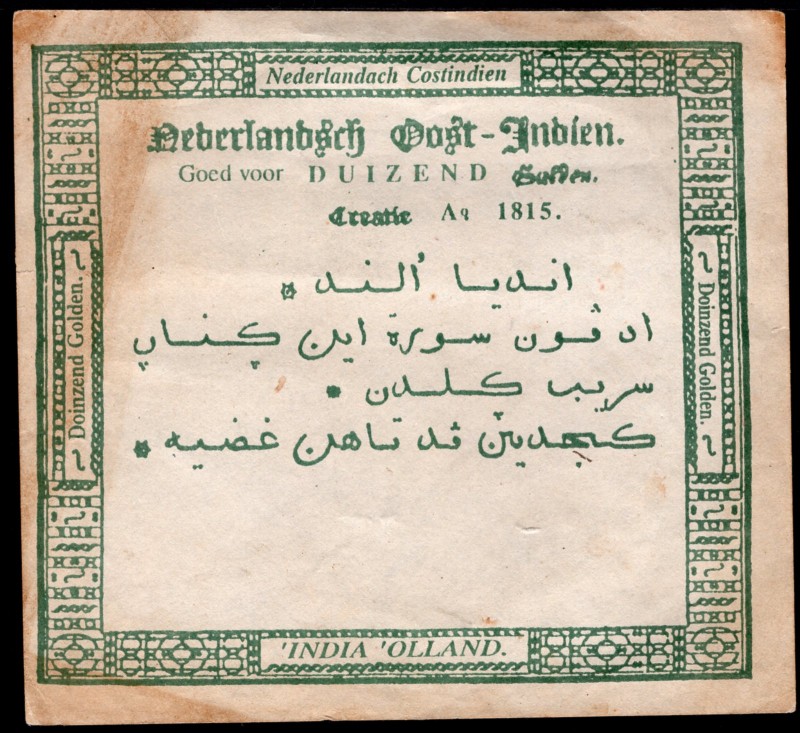 Nederlandach Costindien
Nederlandsch Oost-Indien.
Goed voor DUIZEND Gulden.
Creatie Ao 1815.
انديا ألند *
اد ڤون سورة اين ڬناڤ
سريب كلدن *
كجدين ڤد تاهن غضيه *
~ Doinzend Golden. ~
~ Doinzend Golden. ~
'INDIA 'OLLAND.